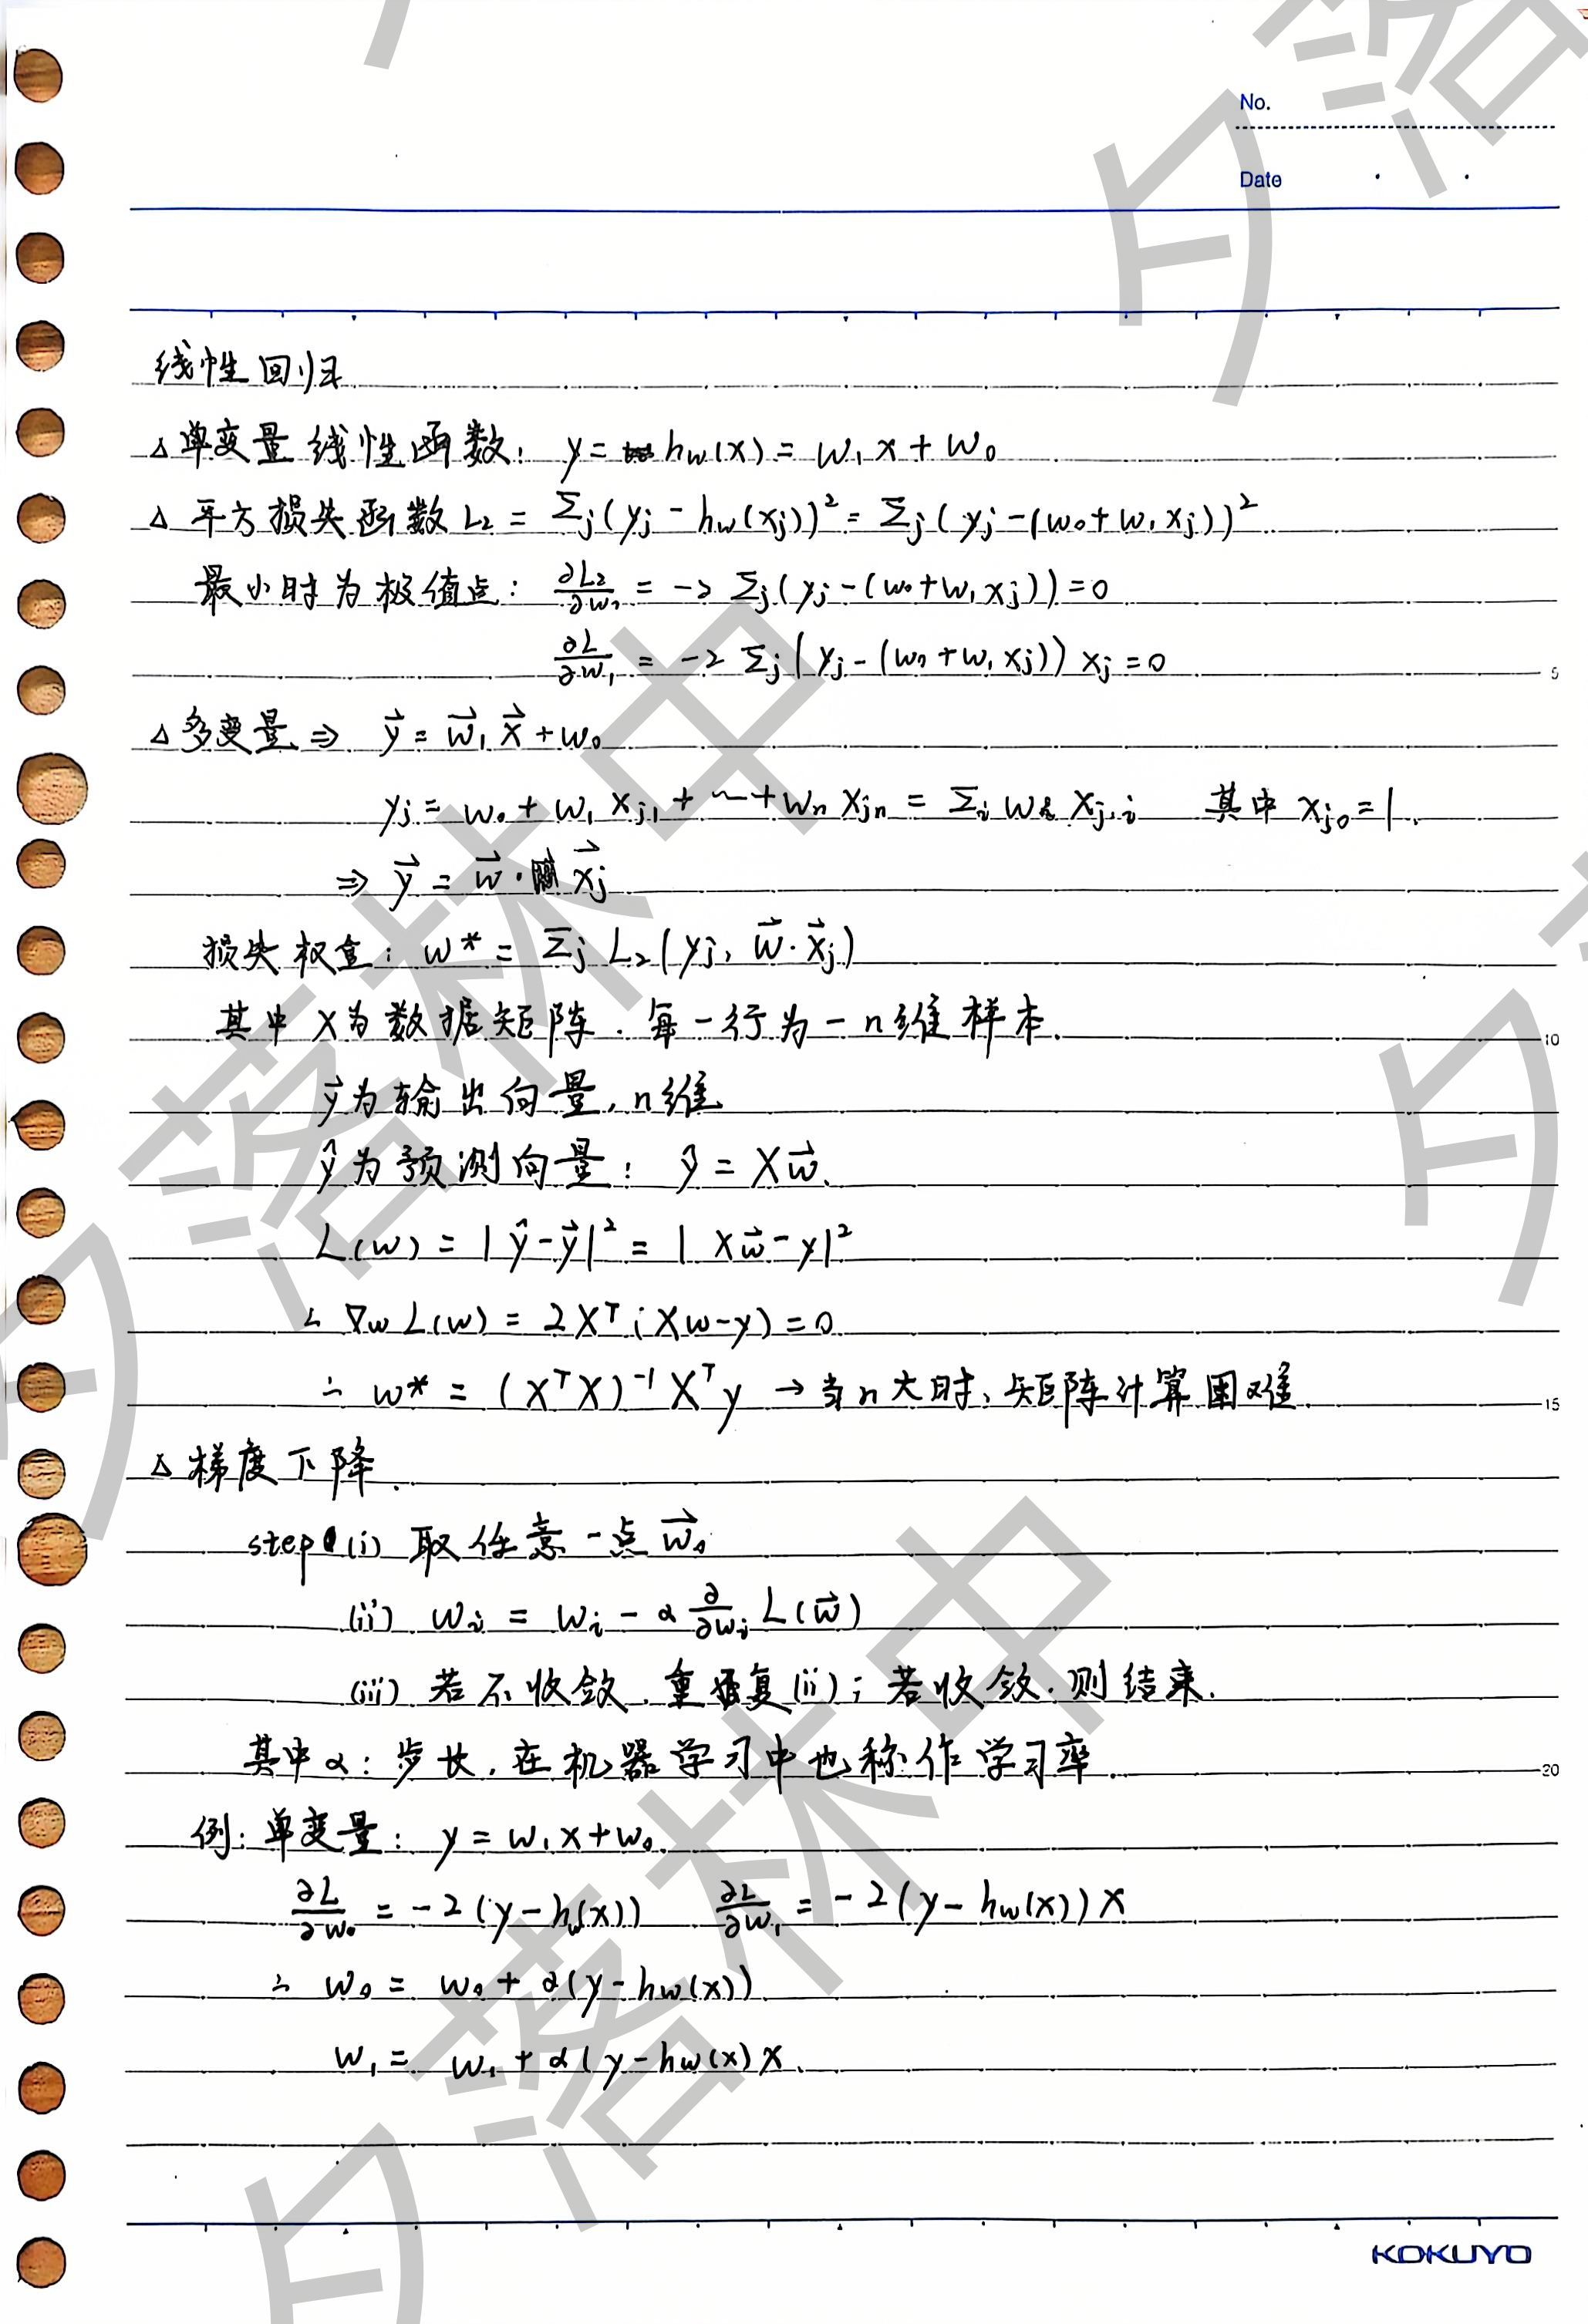 No.
Date
线性回归
△单变量线性函数: y = h_w(x) = w₁x + w₀
△ 平方损失函数 L₂ = Σⱼ(yⱼ - h_w(xⱼ))² = Σⱼ(yⱼ - (w₀ + w₁xⱼ))²
最小时为极值点: ∂L₂/∂w₀ = -2 Σⱼ(yⱼ - (w₀ + w₁xⱼ)) = 0
∂L/∂w₁ = -2 Σⱼ(yⱼ - (w₀ + w₁xⱼ)) xⱼ = 0
5
△多变量 ⇒ y⃗ = w⃗₁ x⃗ + w₀
yⱼ = w₀ + w₁ xⱼ₁ + ⋯ + wₙ xⱼₙ = Σᵢ wᵢ xⱼ,ᵢ 其中 xⱼ₀ = 1.
⇒ y⃗ = w⃗ · x⃗ⱼ
损失权重: w* = Σⱼ L₂(yⱼ, w⃗·x⃗ⱼ)
其中X为数据矩阵. 每一行为一n维样本.
10
y⃗为输出向量, n维
ŷ为预测向量: ŷ = Xw⃗.
L(w) = |ŷ - y⃗|² = |Xw⃗ - y|²
∴ ∇w L(w) = 2Xᵀ(Xw - y) = 0
∴ w* = (XᵀX)⁻¹Xᵀy → 当n大时, 矩阵计算困难.
15
△梯度下降.
step (i) 取任意一点 w⃗₀
(ii) wᵢ = wᵢ - α ∂/∂wᵢ L(w⃗)
(iii) 若不收敛, 重复(ii); 若收敛, 则结束.
其中α: 步长, 在机器学习中也称作学习率.
20
例: 单变量: y = w₁x + w₀.
∂L/∂w₀ = -2(y - h_w(x)) ∂L/∂w₁ = -2(y - h_w(x))x
∴ w₀ = w₀ + α(y - h_w(x))
w₁ = w₁ + α(y - h_w(x)x.
KOKUYO
夕落林中
夕落林中
夕落
夕